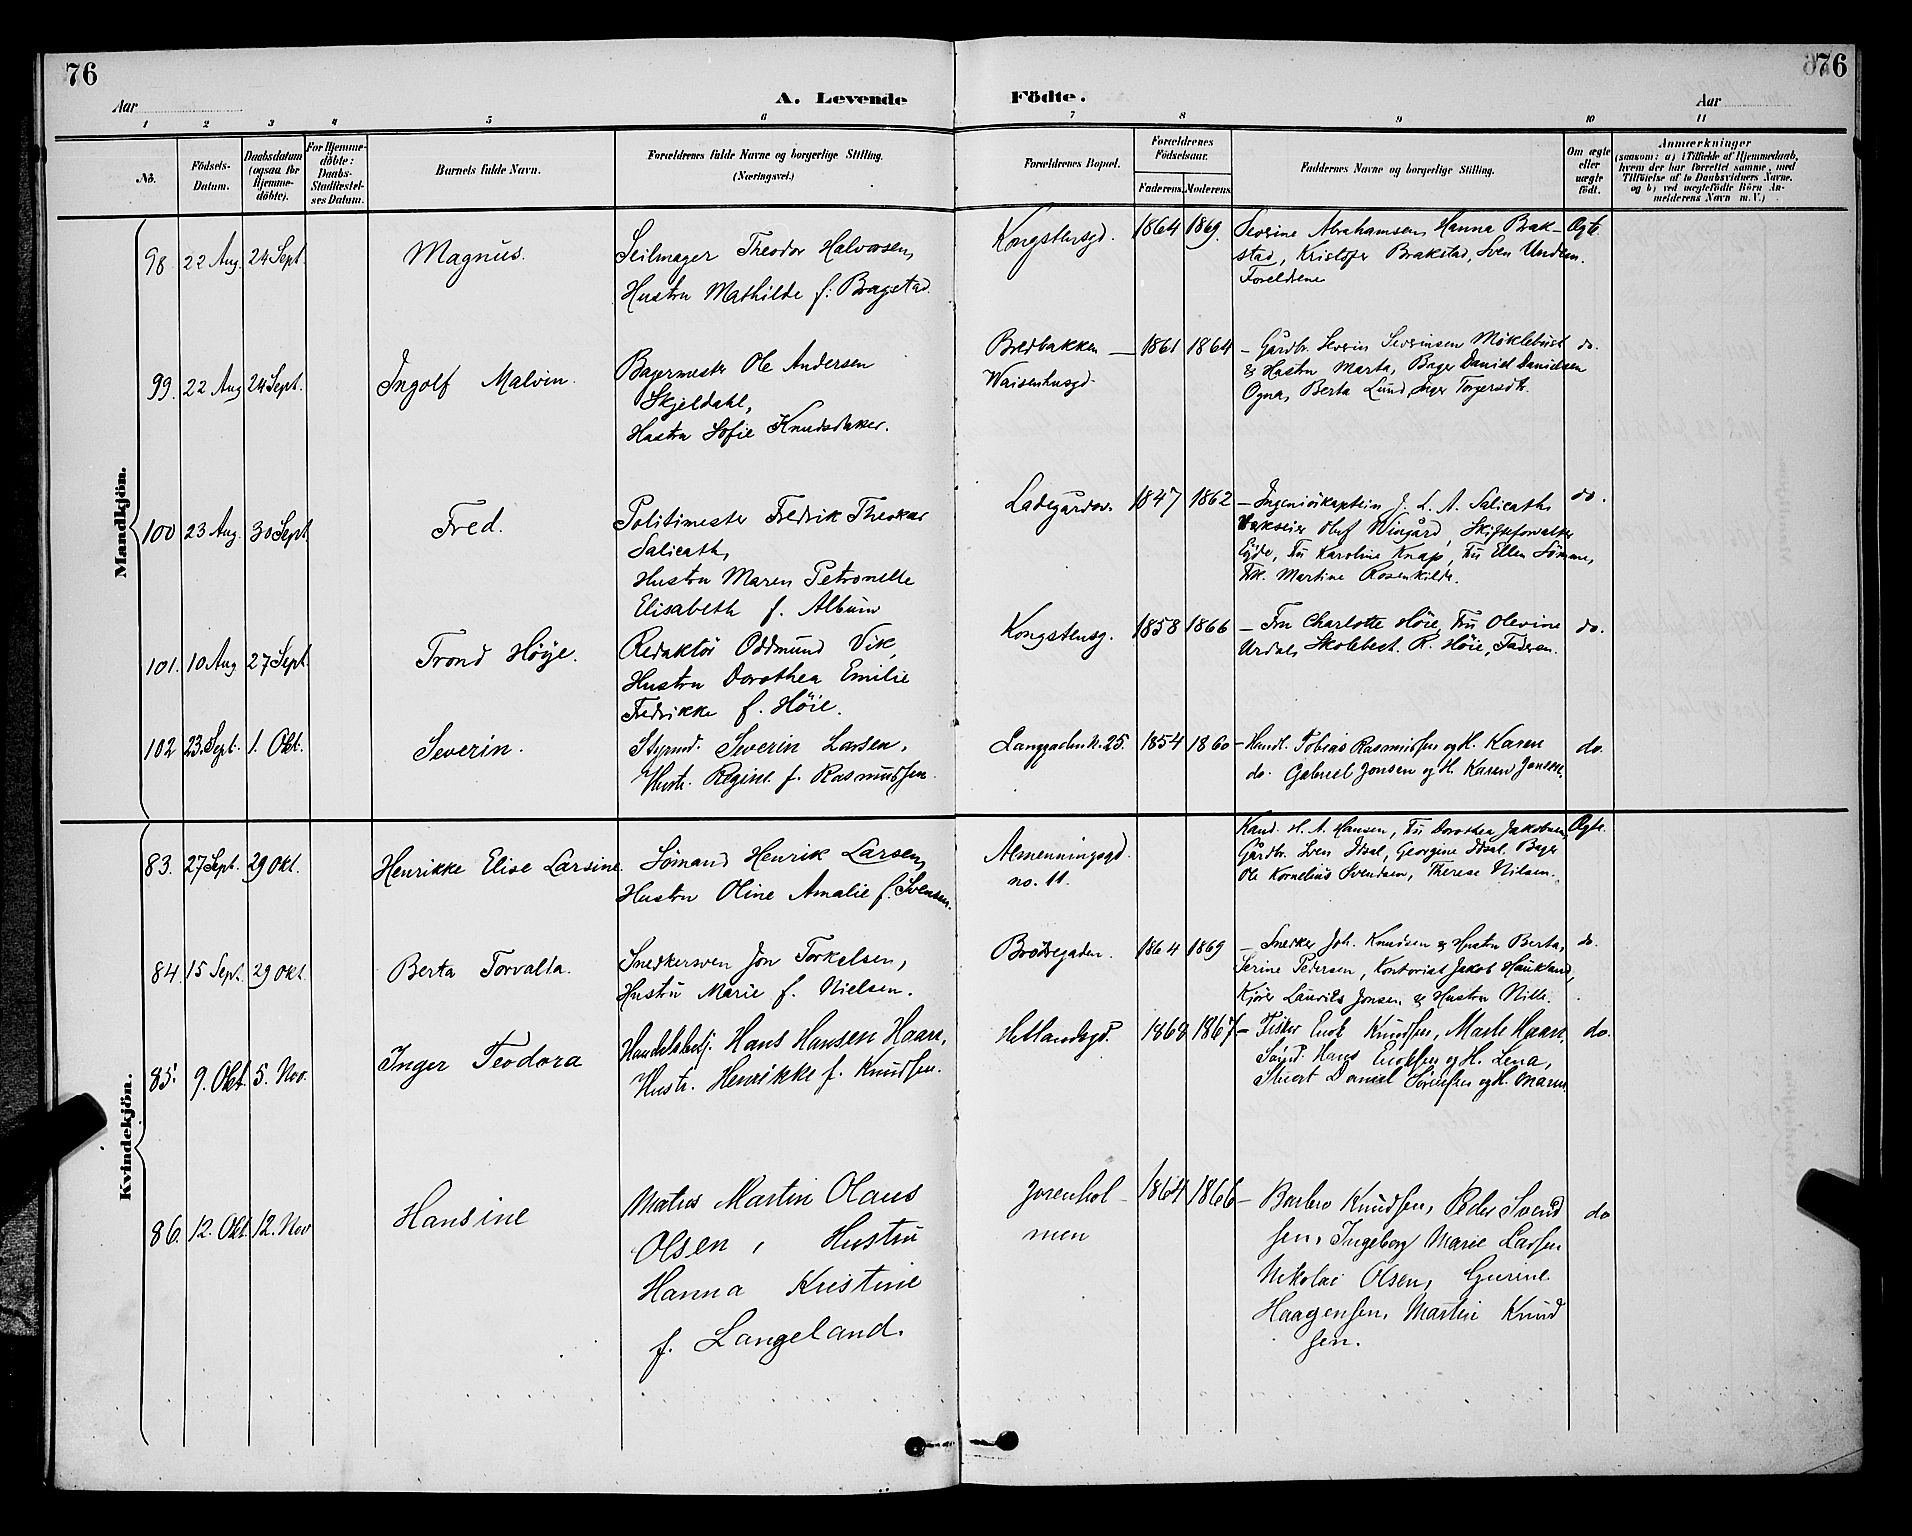 76
76
Aar
A. Levende Födte.
Aar
1 2 3 4 5 6 7 8 9 10 11
No.
Födsels-
Datum.
Daabsdatum
(ogsaa for
Hjemme-
döbte).
For Hjemme-
döbte:
Daabs-
Stadfæstel-
ses Datum.
Barnets fulde Navn.
Forældrenes fulde Navne og borgerlige Stilling.
(Næringsvei.)
Forældrenes Bopæl.
Forældrenes
Födselsaar.
Faderens. Moderens.
Faddernes Navne og borgerlige Stilling.
Om ægte
eller
uægte
födt.
Anmærkninger
(saasom: a) i Tilfælde af Hjemmedaab,
hvem der har forrettet samme, med
Tilföielse af to Daabsvidners Navne.
og b) ved uægtefödte Börn An-
melderens Navn m. V.)
Mandkjön.
98. 22 Aug. 24 Sept. Magnus.
Seilmager Theodor Halvorsen,
Hustru Mathilde f: Bragstad.
Kongstensgd. 1864 1869.
Severine Abrahamsen, Hanna Bak-
stad, Kristofer Brakstad, Sven Undem.
Foreldrene
Ægte
99. 22 Aug 24 Sept. Ingolf Malvin.
Bagermester Ole Andersen
Skjeldahl,
Hustru Sofie Knudsdaker.
Bredbakken —
Waisenhusgd.
1861 1864
— Gårdbr. Severin Severinsen Möklebust
& Hustru Marta, Bager Daniel Danielsen
Ogna, Berta Lund, Inger Torgersdtr.
do.
100 23 Aug. 30 Sept. Fred.
Politimester Fredrik Theokar
Salicath,
Hustru Maren Petronelle
Elisabeth f. Album
Ladegårdsv. 1847 1862
— Ingeniörkaptein J. L. A. Salicath,
Oluf Wingård, Skifteforvalter
Eyde, Fru Karoline Knap, Fru Ellen Sömme,
Frk. Martine Rosenkilde.
do.
101. 10 Aug 27 Sept. Trond Höye.
Redaktör Oddmund Vik,
Hustru Dorothea Emilie
Fredrikke f. Höie.
Kongstensg. 1858 1866
— Fru Charlotte Höie, Fru Olevine
Urdal, Skolebest. R. Höie, Faderen.
do.
102 23. Sept. 1. Okt. Severin.
Styrmd. Severin Larsen,
Hustr. Regine f. Rasmussen.
Langgaden N. 25. 1854 1860
— Handl. Tobias Rasmussen og H. Karen
do. Gabriel Jonsen og H. Karen Jonsen.
do.
Kvindekjön.
83. 27 Sept. 29 Okt. Henrikke Elise Larsine
Sömand Henrik Larsen,
Hustru Oline Amalie f. Svensen.
Almenningsgd.
no. 11.
Kand. H. A. Hansen, Fru Dorothea Jakobsen
Gårdbr. Sven Idsal, Georgine Idsal. Bager
Ole Kornelius Svendsen, Therese Nilsen.
Ægte.
84. 15 Sept. 29 Okt. Berta Torvalla.
Snedkersven Jon Torkelsen,
Hustru Marie f. Nielsen.
Brödregaden. 1864 1869
— Snedker Joh. Knudsen & Hustru Berta,
Serine Pedersen, Kontorist Jakob Haukland,
Kjörer Laurits Jonsen & Hustru Nille.
do.
85. 9. Okt. 5. Nov. Inger Teodora
Handelsbetj. Hans Hansen Haare,
Hustr. Henrikke f. Knudsen.
Hetlandsgd. 1868 1867
— Fisker Enok Knudsen, Marte Haare,
Sömd. Hans Enoksen og H. Lena,
Stuert Daniel Sörensen og H. Maren
do.
86. 12. Okt. 12. Nov Hansine
Matros Martin Olaus
Olsen, Hustru
Hanna Kristine
f. Langeland.
Jorenhol-
men
1864 1866
— Barbro Knudsen, Peder Svend
sen, Ingeborg Marie Larsen
Nikolai Olsen, Gurine
Haagensen, Martin Knud
sen.
do